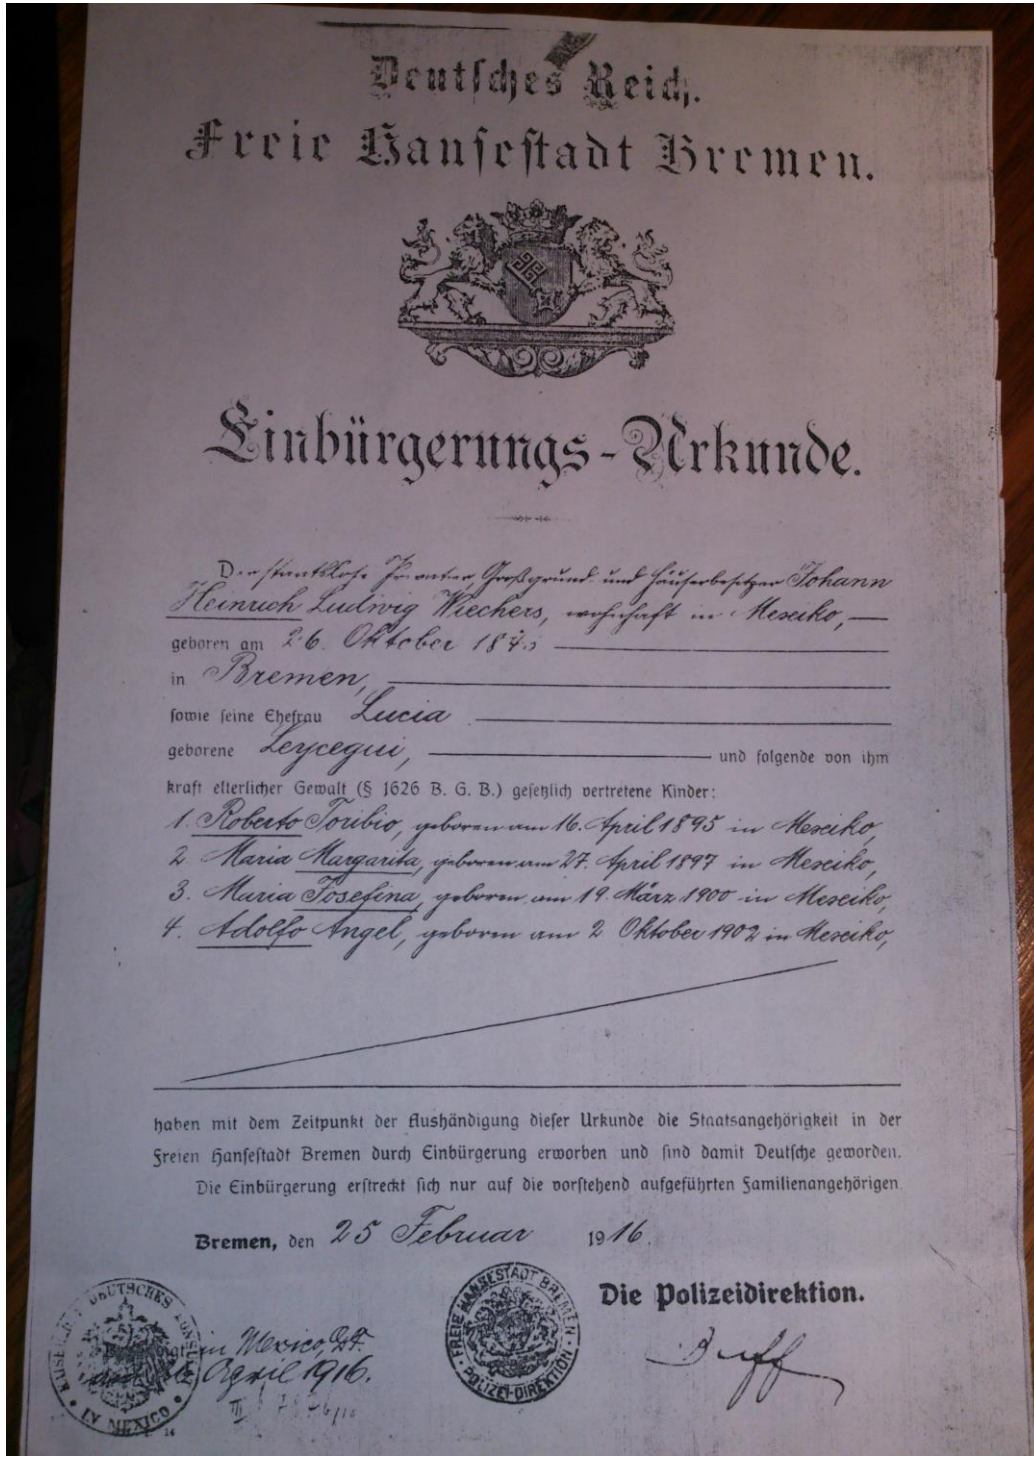 Deutsches Reich.
Freie Hansestadt Bremen.
Einbürgerungs-Urkunde.
Der staatslose Privatier, Großgrund- und Häuserbesitzer Johann
Heinrich Ludwig Wiechers, wohnhaft in Mexiko,
geboren am 26. Oktober
in Bremen,
sowie seine Ehefrau Lucia
geborene Leycegui, und folgende von ihm
kraft elterlicher Gewalt (§ 1626 B. G. B.) gesetzlich vertretene Kinder:
1. Roberto Toribio, geboren am 16. April 1895 in Mexiko,
2. Maria Margarita, geboren am 27. April 1897 in Mexiko,
3. Maria Josefina, geboren am 19. März 1900 in Mexiko,
4. Adolfo Angel, geboren am 2 Oktober 1902 in Mexiko,
haben mit dem Zeitpunkt der Aushändigung dieser Urkunde die Staatsangehörigkeit in der
Freien Hansestadt Bremen durch Einbürgerung erworben und sind damit Deutsche geworden.
Die Einbürgerung erstreckt sich nur auf die vorstehend aufgeführten Familienangehörigen.
Bremen, den 25 Februar 1916.
Die Polizeidirektion.
FREIE HANSESTADT BREMEN
POLIZEI-DIREKTION
DEUTSCHES
IN MEXICO
in Mexico, D.F.
April 1916.